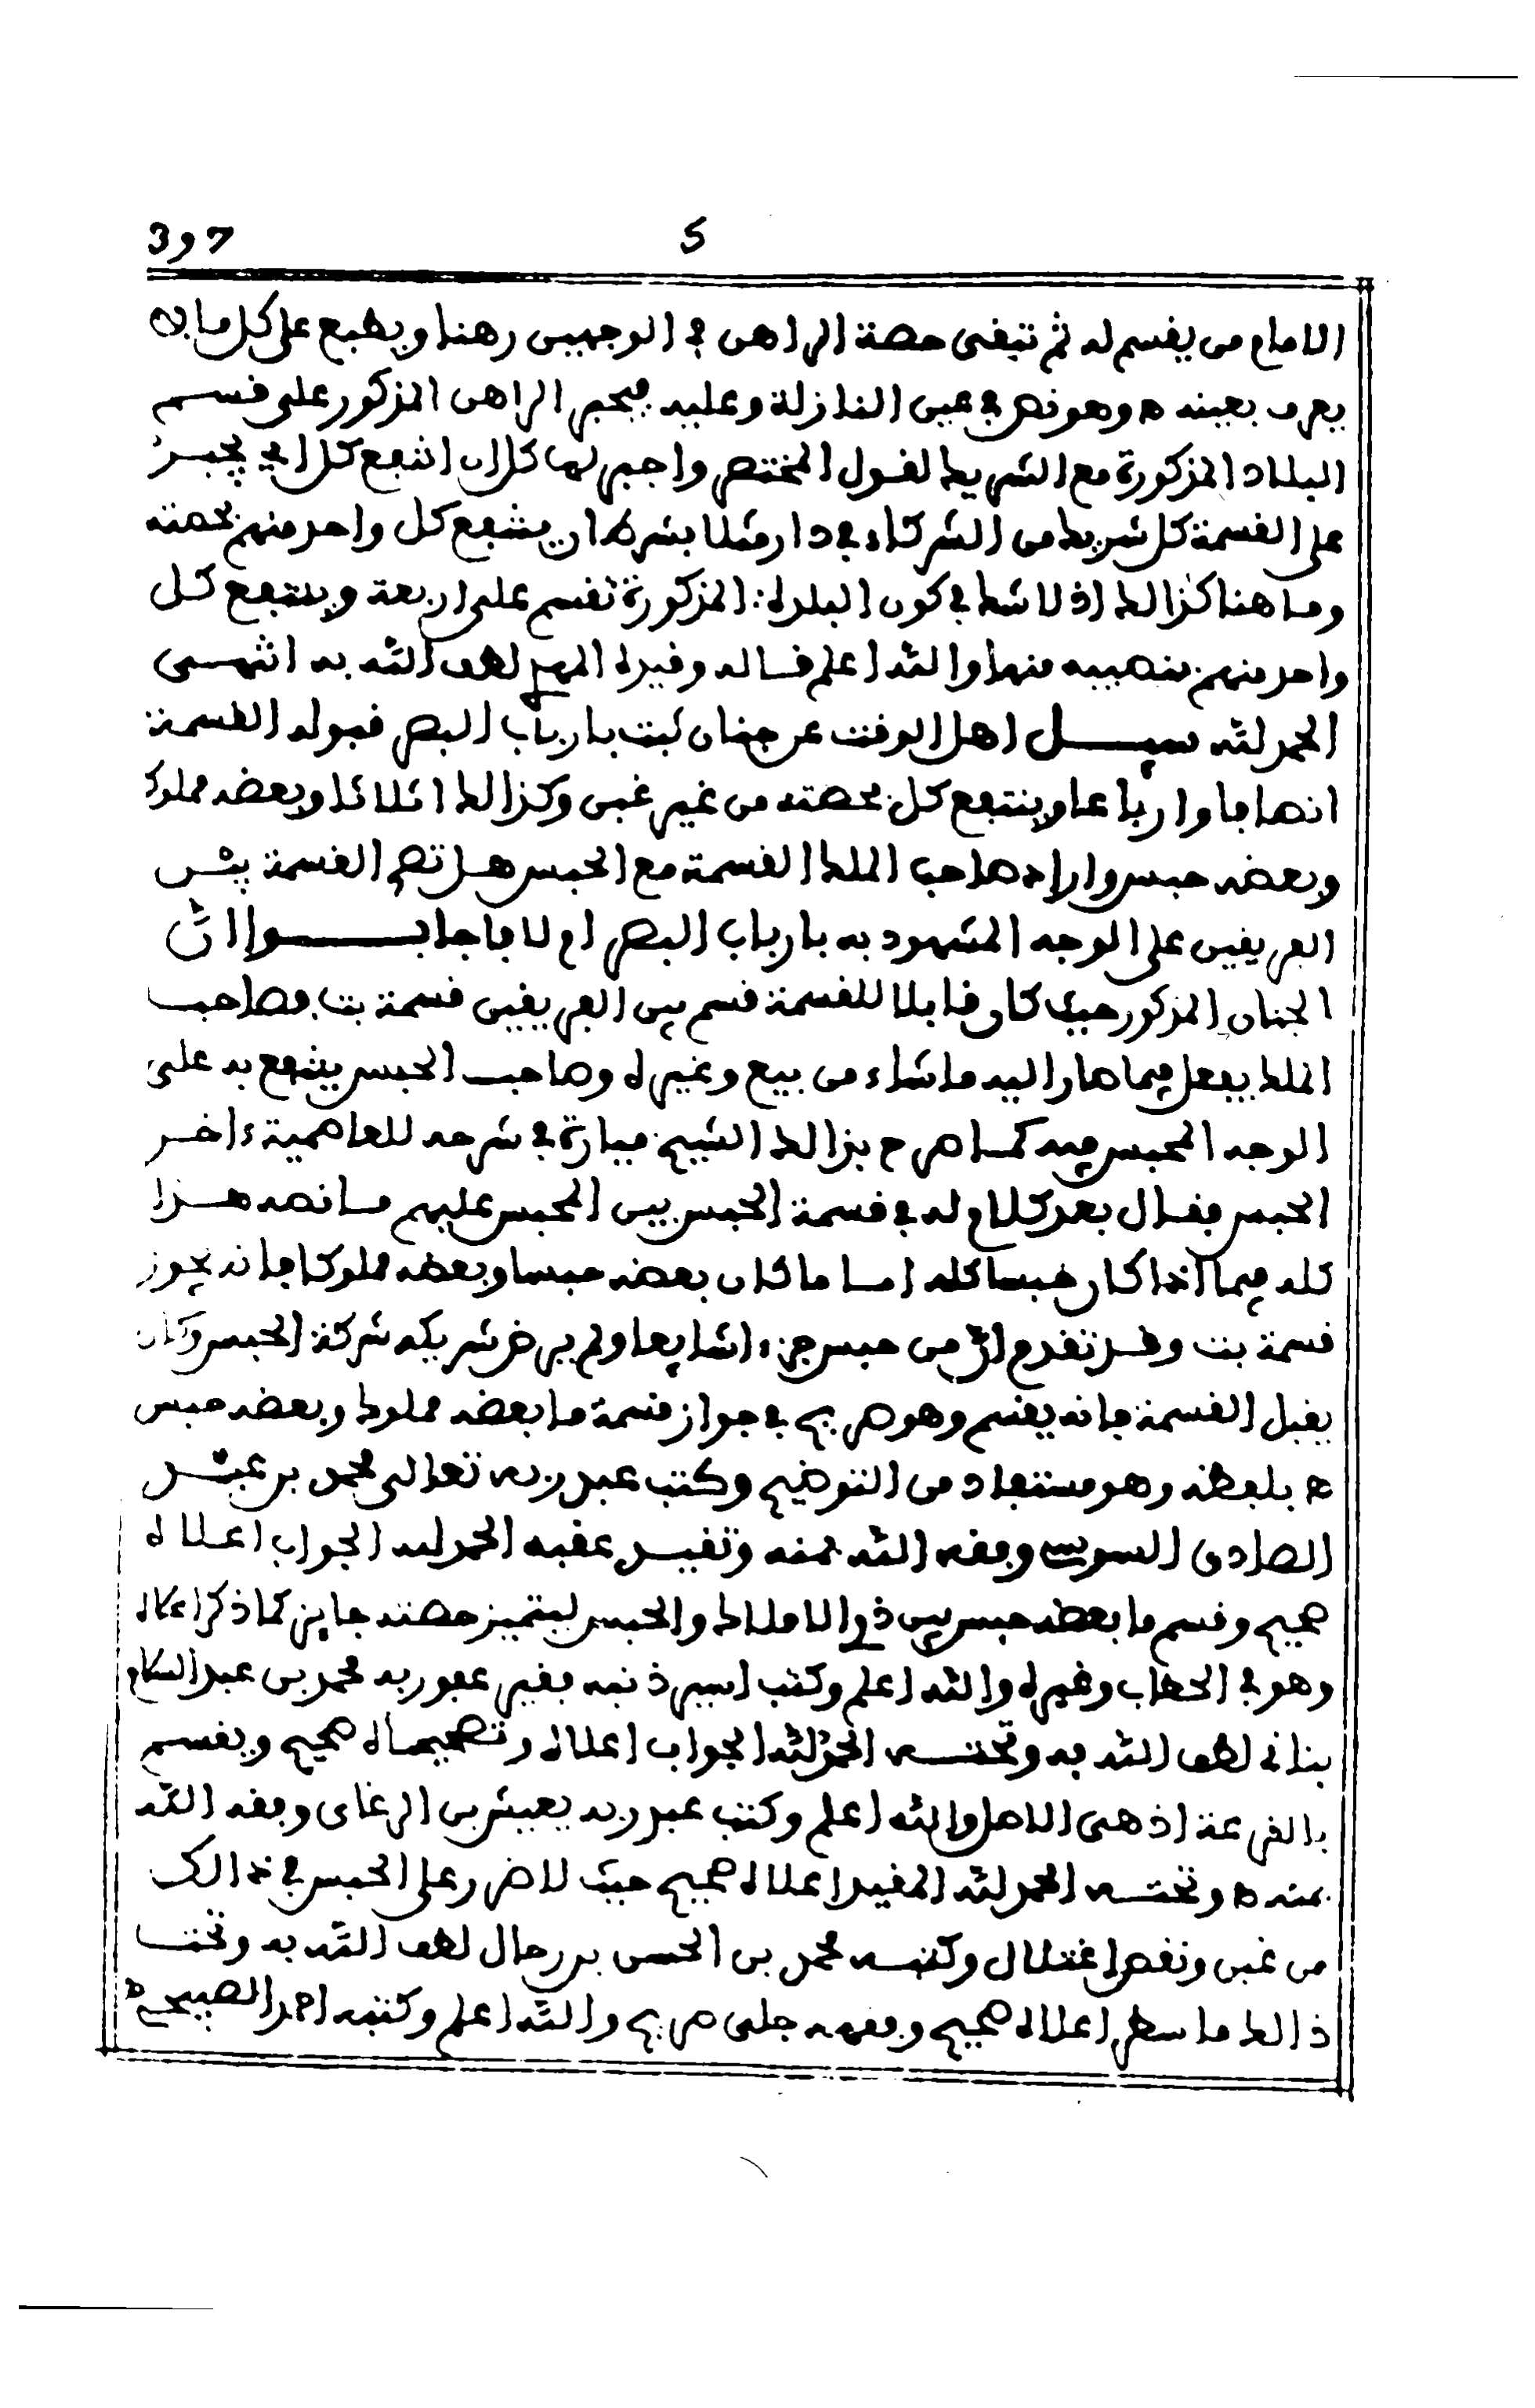 397 5
الامام من يقسم له ثم تبقى حصة الراهن في الوجهين رهنا ويطبع على كل ما لا
يعرف بعينه ه وهو نص في عين النازلة وعليه فيجبر الراهن المذكور على قسم
البلاد المذكورة مع الشريك لقول المختصر واجبر لها كل ان انتفع كل اي يجبر
على القسمة كل شريك من الشركاء في دار مثلا بشرط ان ينتفع كل واحد منهم بحصته
وما هنا كذالك اذ لا شك في كون البلد المذكورة تقسم على اربعة وينتفع كل
واحد منهم بنصيبه منها والله اعلم قاله وقيده المهدي لطف الله به انتهى
الحمد لله سيل اهل الوقت عن جنان ثبت بارباب البصر قبوله القسمة
انصافا وارباعا وينتفع كل بحصته من غير غبن وكذالك اثلاثا وبعضه مملوك
وبعضه حبس واراد صاحب الملك القسمة مع الحبس هل تصح القسمة بين
الفريقين على الوجه المشهود به بارباب البصر ام لا فاجابوا ان
الجنان المذكور حيث كان قابلا للقسمة قسم بين الفريقين قسمة بت فصاحب
الملك يفعل فيما صار اليه ما شاء من بيع وغيره وصاحب الحبس ينتفع به على
الوجه المحبس فيه كما صرح بذالك الشيخ ميارة في شرحه للعاصمية ءاخر
الحبس فقال بعد كلام له في قسمة الحبس بين المحبس عليهم ما نصه هذا
كله فيما اذا كان حبسا كله اما ما كان بعضه حبسا وبعضه مملوكا فانه يجوز
قسمة بت وقد تقدم ان من حبس جزءا شايعا ولم يرض شريكه شركة الحبس وكان
يقبل القسمة فانه يقسم وهو صريح في جواز قسمة ما بعضه مملوك وبعضه حبس
ه بلفظه وهو مستفاد من التوضيح وكتب عبد ربه تعالى محمد بن عبد
الصادق السويسي وفقه الله بمنه وتقيد عقبه الحمد لله الجواب اعلاه
صحيح وقسم ما بعضه حبس بين ذوي الاملاك والحبس ليتميز حصته جايز كما ذكر اعلاه
وهو في الحطاب وغيره والله اعلم وكتب اسير ذنبه فقير عفو ربه محمد بن عبد السلام
بناني لطف الله به وتحته الحمد لله الجواب اعلاه وتصحيحاه صحيح ويقسم
بالقرعة اذ هي الاصل والله اعلم وكتب عبد ربه يعيش بن الرغاي وفقه الله
بمنه ه وتحته الحمد لله المقيد اعلاه صحيح حيث لا ضرر على الحبس في ذالك
من غبن ونقص اغتلال وكتبه محمد بن الحسن بن رحال لطف الله به وتحت
ذالك ما سطر اعلاه صحيح وفقهه جلي صريح والله اعلم وكتبه احمد